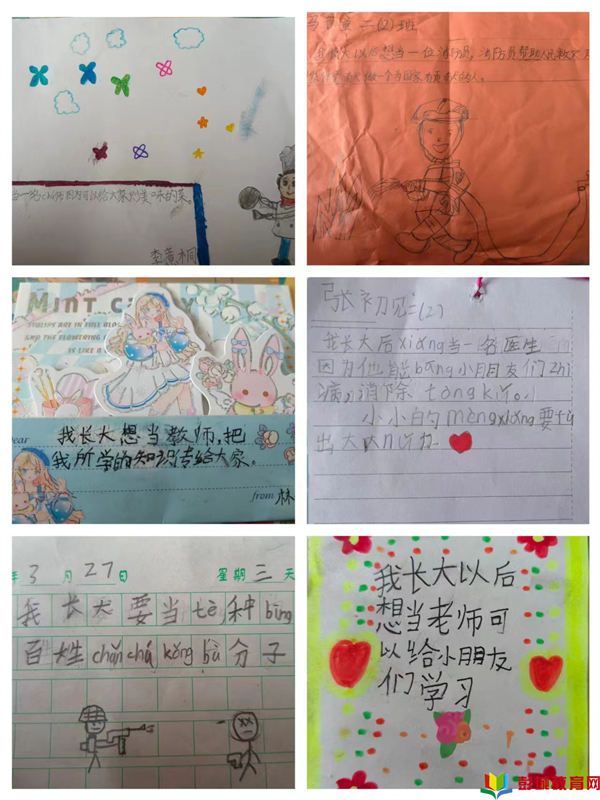 当一名chú师因为可以给大家做美味的菜。
李黄桐
二(2)班
我长大以后想当一位消防员,消防员帮助人民救火
做一个为国家有贡献的人。
MINT
我长大想当教师,把
我所学的知识传给大家。
from 林
张初见二(2)
我长大后xiǎng当一名医生
因为他总bāng小朋友们zhì
病,消除tòngkǔ。
小小的mèngxiǎng要fù
出大大nǔ力
3月27日 星期三 天
我长大要当tè种bīng
百姓chǎnchú kǒngbù分子
我长大以后
想当老师可
以给小朋友
们学习
彭州教育网